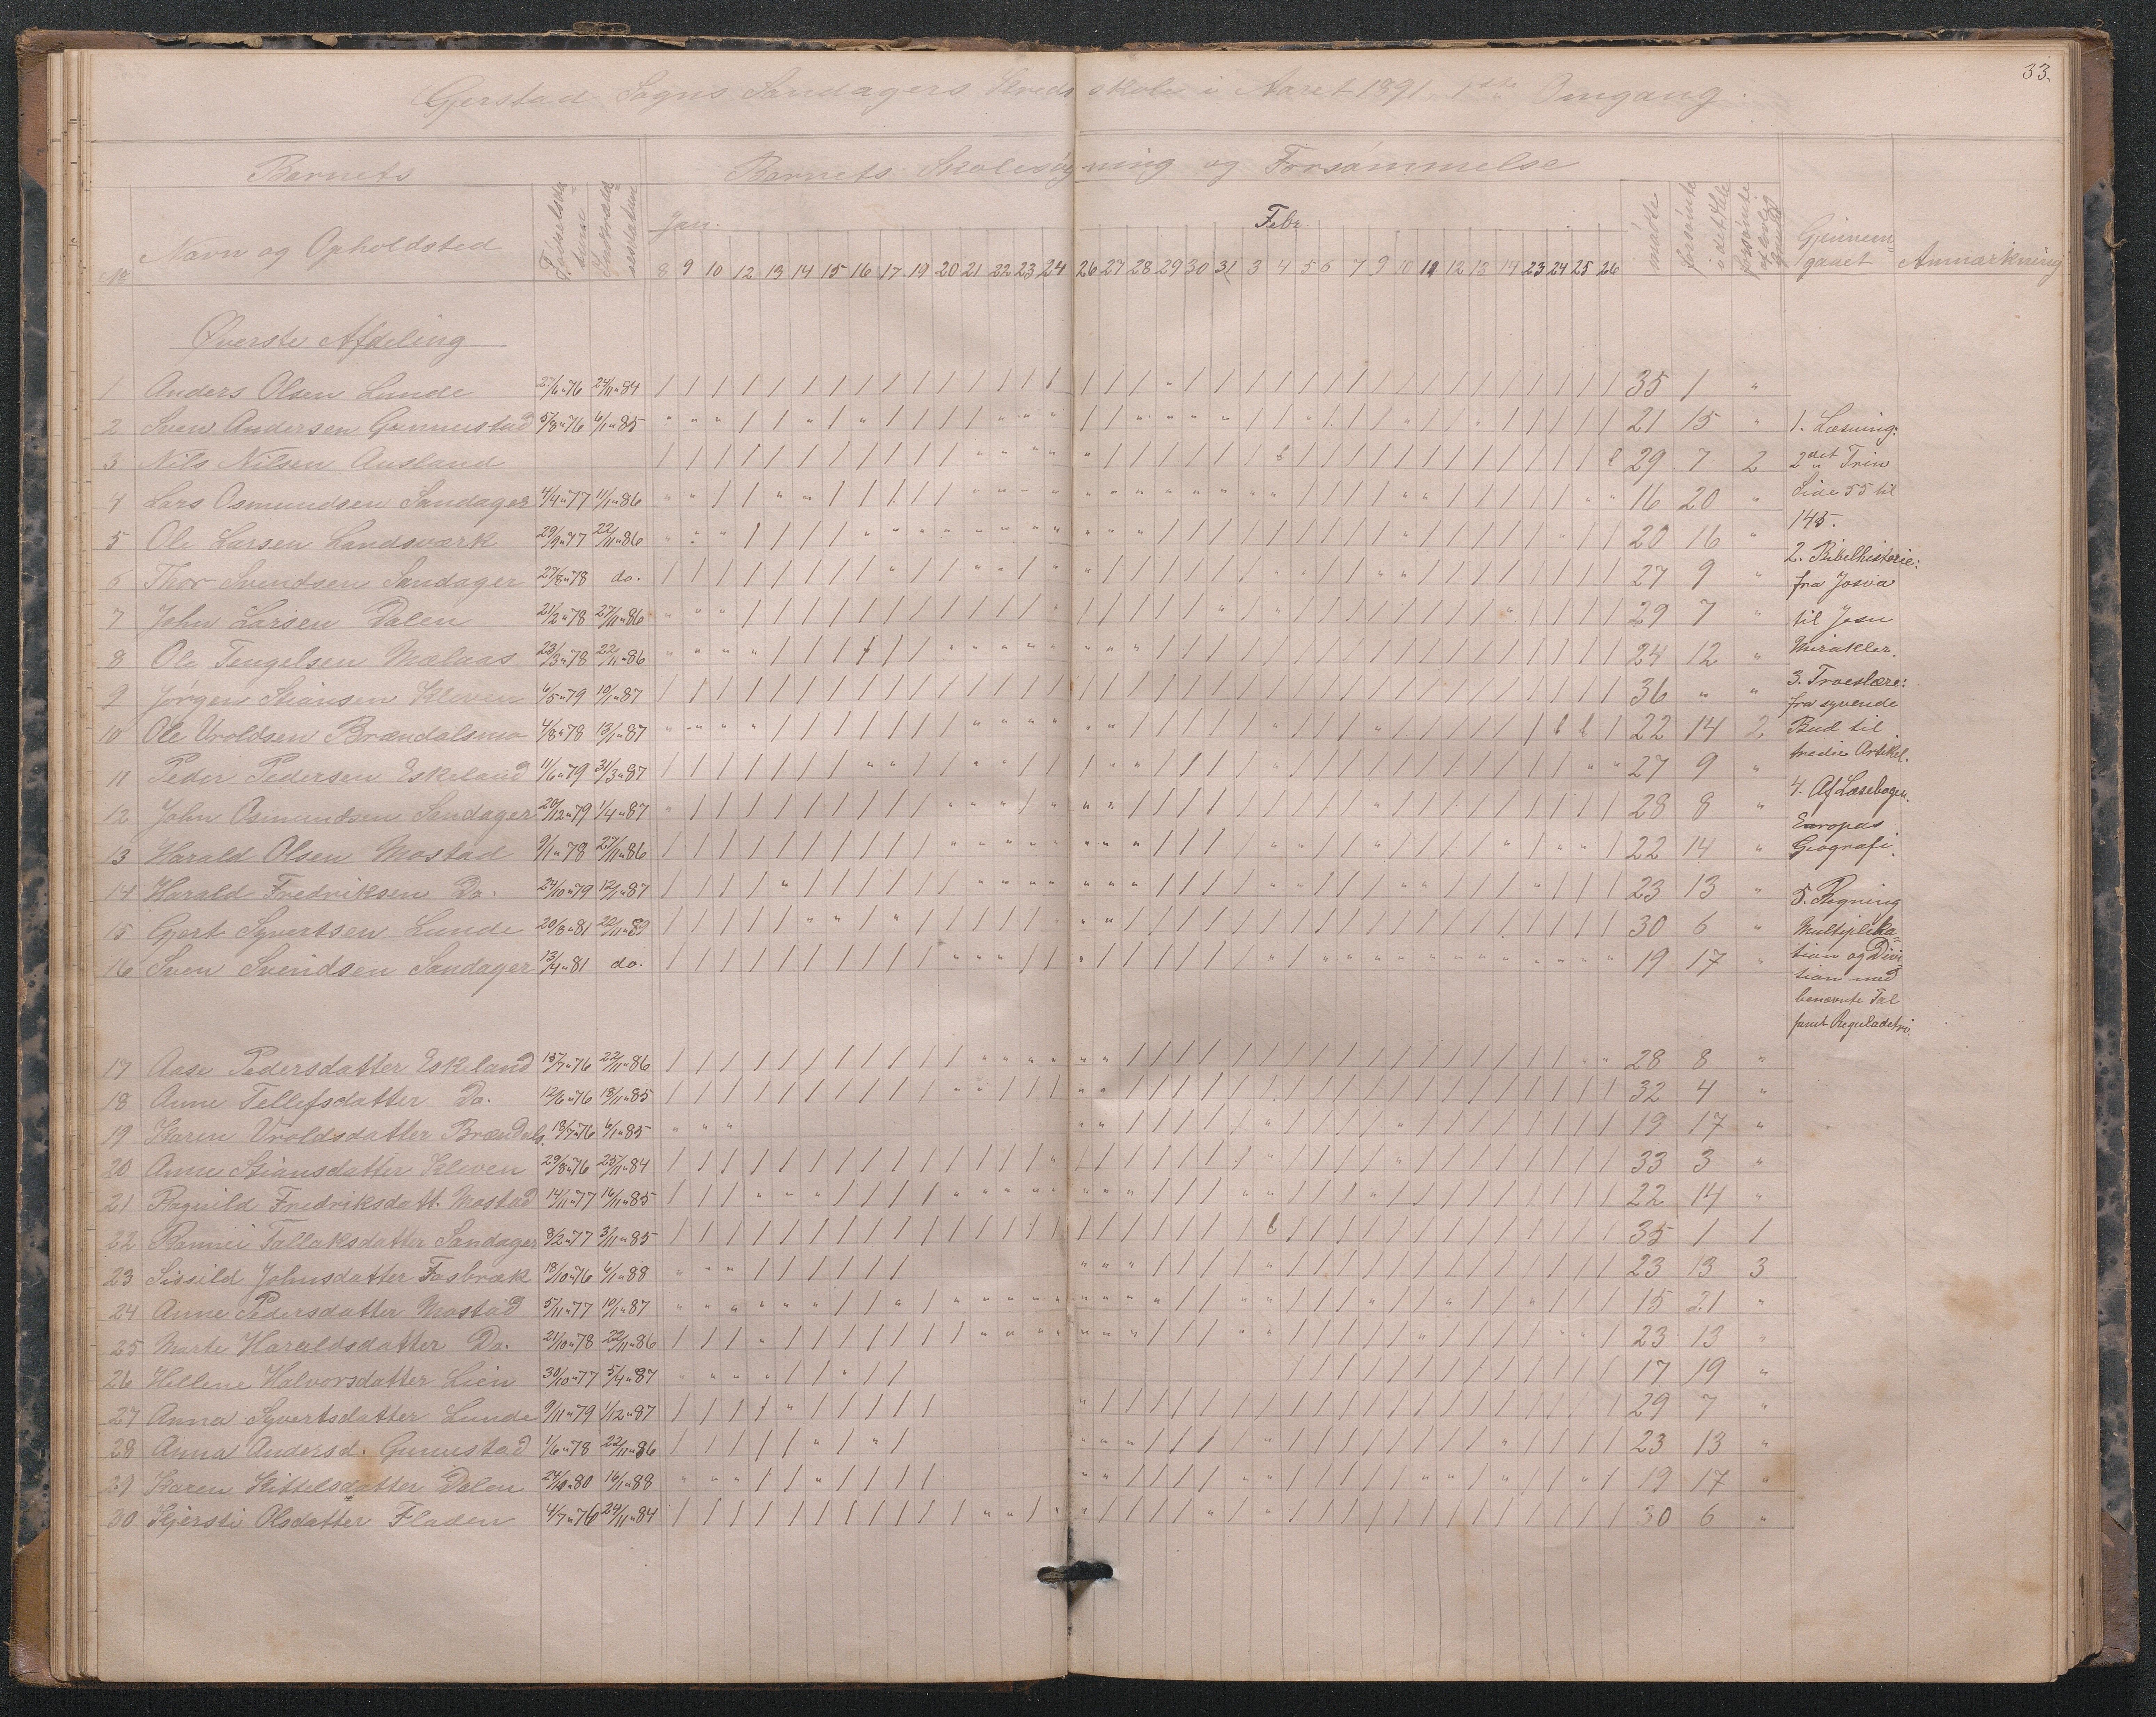 33.
Gjerstad Sogns Sandagers Kredsskole i Aaret 1891. 1ste Omgang.
Barnets
Barnets Skolesøgning og Forsømmelse
No
Navn og Opholdsted
Jan.
Febr.
mødte
forsømte i det Hele
Gjennemgaaet
Anmærkning
8 9 10 12 13 14 15 16 17 19 20 21 22 23 24 26 27 28 29 30 31 3 4 5 6 7 9 10 11 12 13 14 23 24 25 26
Øverste Afdeling
1 Anders Olsen Lunde 27/6"76 24/11"84 35 1 "
2 Sven Andersen Gunnustad 5/8"76 6/1"85 21 15 "
3 Nils Nilsen Ausland 29 7 2
4 Lars Osmundsen Sandager 4/4"77 11/1"86 16 20 "
5 Ole Larsen Landsværk 29/9"77 22/11"86 20 16 "
6 Thor Svendsen Sandager 27/8"78 do. 27 9 "
7 John Larsen Dalen 21/2"78 27/11"86 29 7 "
8 Ole Tengelsen Mælaas 23/3"78 22/11"86 24 12 "
9 Jørgen Stiansen Kleven 6/5"79 10/1"87 36 " "
10 Ole Vroldsen Brændalsmo 4/8"78 13/1"87 22 14 2
11 Peder Pedersen Eskeland 11/6"79 31/3"87 27 9 "
12 John Osmundsen Sandager 20/12"79 1/4"87 28 8 "
13 Harald Olsen Mostad 9/1"78 27/11"86 22 14 "
14 Harald Fredriksen Do. 24/10"79 12/1"87 23 13 "
15 Gjert Syvertsen Lunde 20/8"81 20/11"89 30 6 "
16 Sven Svendsen Sandager 13/4"81 do. 19 17 "
17 Aase Pedersdatter Eskeland 15/7"76 22/11"86 28 8 "
18 Anne Tellefsdatter Do. 12/6"76 18/11"85 32 4 "
19 Karen Vroldsdatter Brændals. 18/7"76 6/1"85 19 17 "
20 Anne Stiansdatter Kleven 29/8"76 25/11"84 33 3 "
21 Ragnild Fredriksdatt. Mostad 14/11"77 16/11"85 22 14 "
22 Rannei Tallaksdatter Sandager 8/2"77 3/11"85 35 1 1
23 Sissild Johnsdatter Fosbræk 18/10"76 6/1"88 23 13 3
24 Anne Pedersdatter Mostad 5/11"77 10/1"87 15 21 "
25 Marte Haraldsdatter Do. 21/10"78 22/11"86 23 13 "
26 Hellene Halvorsdatter Lien 30/10"77 5/4"87 17 19 "
27 Anna Syvertsdatter Lunde 9/11"79 1/12"87 29 7 "
28 Anna Andersd. Gunnustad 1/6"78 22/11"86 23 13 "
29 Karen Kittelsdatter Dalen 24/10"80 16/1"88 19 17 "
30 Kjersti Olsdatter Fladen 4/7"76 24/11"84 30 6 "
1. Læsning:
2det Trin
Side 55 til
145.
2. Bibelhistorie:
fra Josva
til Jesu
Mirakler.
3. Troeslære:
fra syvende
Bud til
tredie Artikel.
4. Af Læsebogen.
Europas
Geografi.
5. Regning
Multiplika=
tion og Divi
tion med
benævnte Tal
samt Reguladetri.